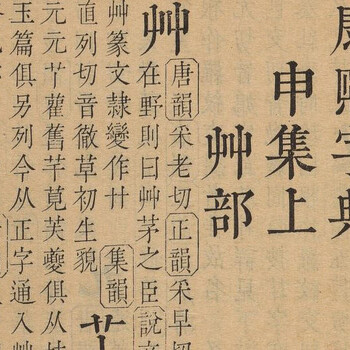 康熙字典
申集上
艸部
艸
唐韻采老切正韻采早切
在野則曰艸茅之臣說文
艸篆文隸變作廾
集韻
直列切音徹草初生貌
元元丫雚舊芊莧芙夔俱从
玉篇俱另列今从正字通入艸